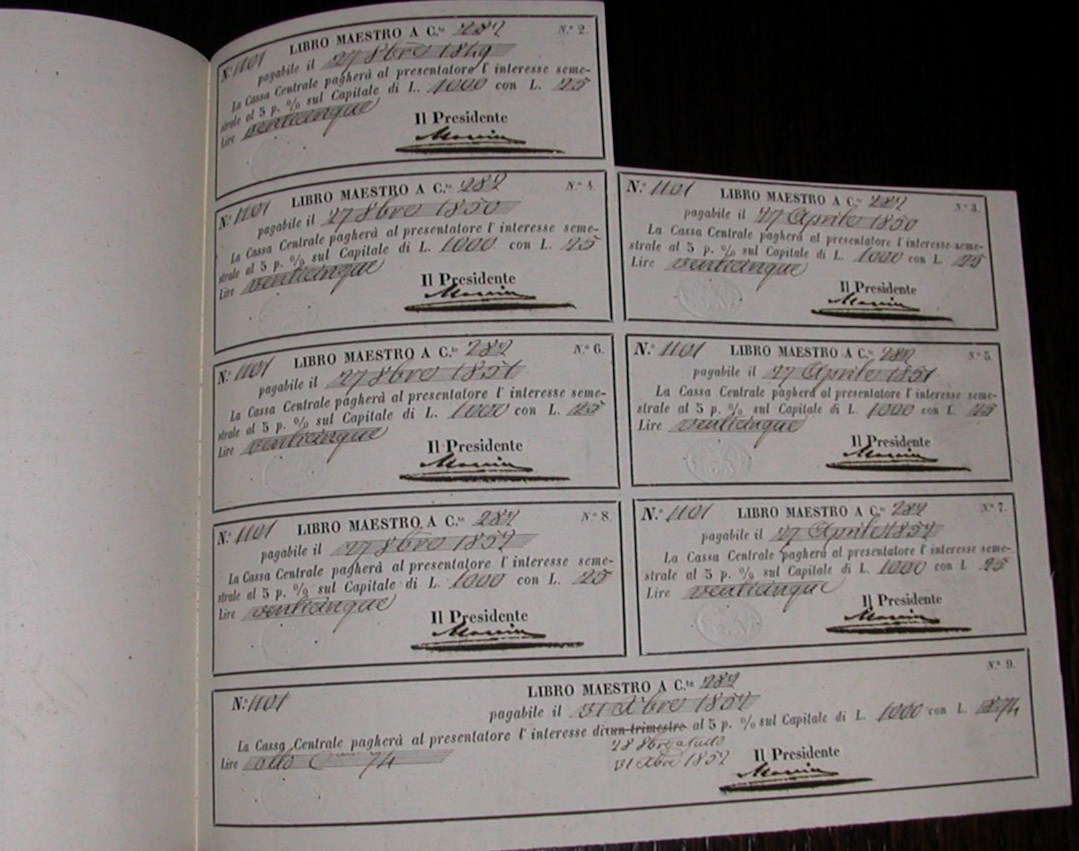 N.º 1101 LIBRO MAESTRO A C.te 282 N.º 2.
pagabile il 27 8bre 1849
La Cassa Centrale pagherà al presentatore l' interesse seme-
strale al 5 p. % sul Capitale di L. 1000 con L. 25
Lire venticinque
Il Presidente
N.º 1101 LIBRO MAESTRO A C.te 282 N.º 4.
pagabile il 27 8bre 1850
La Cassa Centrale pagherà al presentatore l' interesse seme-
strale al 5 p. % sul Capitale di L. 1000 con L. 25
Lire venticinque
Il Presidente
N.º 1101 LIBRO MAESTRO A C.te 282 N.º 3.
pagabile il 27 Aprile 1850
La Cassa Centrale pagherà al presentatore l' interesse seme-
strale al 5 p. % sul Capitale di L. 1000 con L. 25
Lire venticinque
Il Presidente
N.º 1101 LIBRO MAESTRO A C.te 282 N.º 6.
pagabile il 27 8bre 1851
La Cassa Centrale pagherà al presentatore l' interesse seme-
strale al 5 p. % sul Capitale di L. 1000 con L. 25
Lire venticinque
Il Presidente
N.º 1101 LIBRO MAESTRO A C.te 282 N.º 5.
pagabile il 27 Aprile 1851
La Cassa Centrale pagherà al presentatore l' interesse seme-
strale al 5 p. % sul Capitale di L. 1000 con L. 25
Lire venticinque
Il Presidente
N.º 1101 LIBRO MAESTRO A C.te 282 N.º 8.
pagabile il 27 8bre 1852
La Cassa Centrale pagherà al presentatore l' interesse seme-
strale al 5 p. % sul Capitale di L. 1000 con L. 25
Lire venticinque
Il Presidente
N.º 1101 LIBRO MAESTRO A C.te 282 N.º 7.
pagabile il 27 Aprile 1852
La Cassa Centrale pagherà al presentatore l' interesse seme-
strale al 5 p. % sul Capitale di L. 1000 con L. 25
Lire venticinque
Il Presidente
N.º 1101 LIBRO MAESTRO A C.te 282 N.º 9.
pagabile il 31 Xbre 1852
La Cassa Centrale pagherà al presentatore l' interesse di un trimestre al 5 p. % sul Capitale di L. 1000 con L. 8.74
28 8bre a tutto
31 Xbre 1852
Lire otto 74
Il Presidente